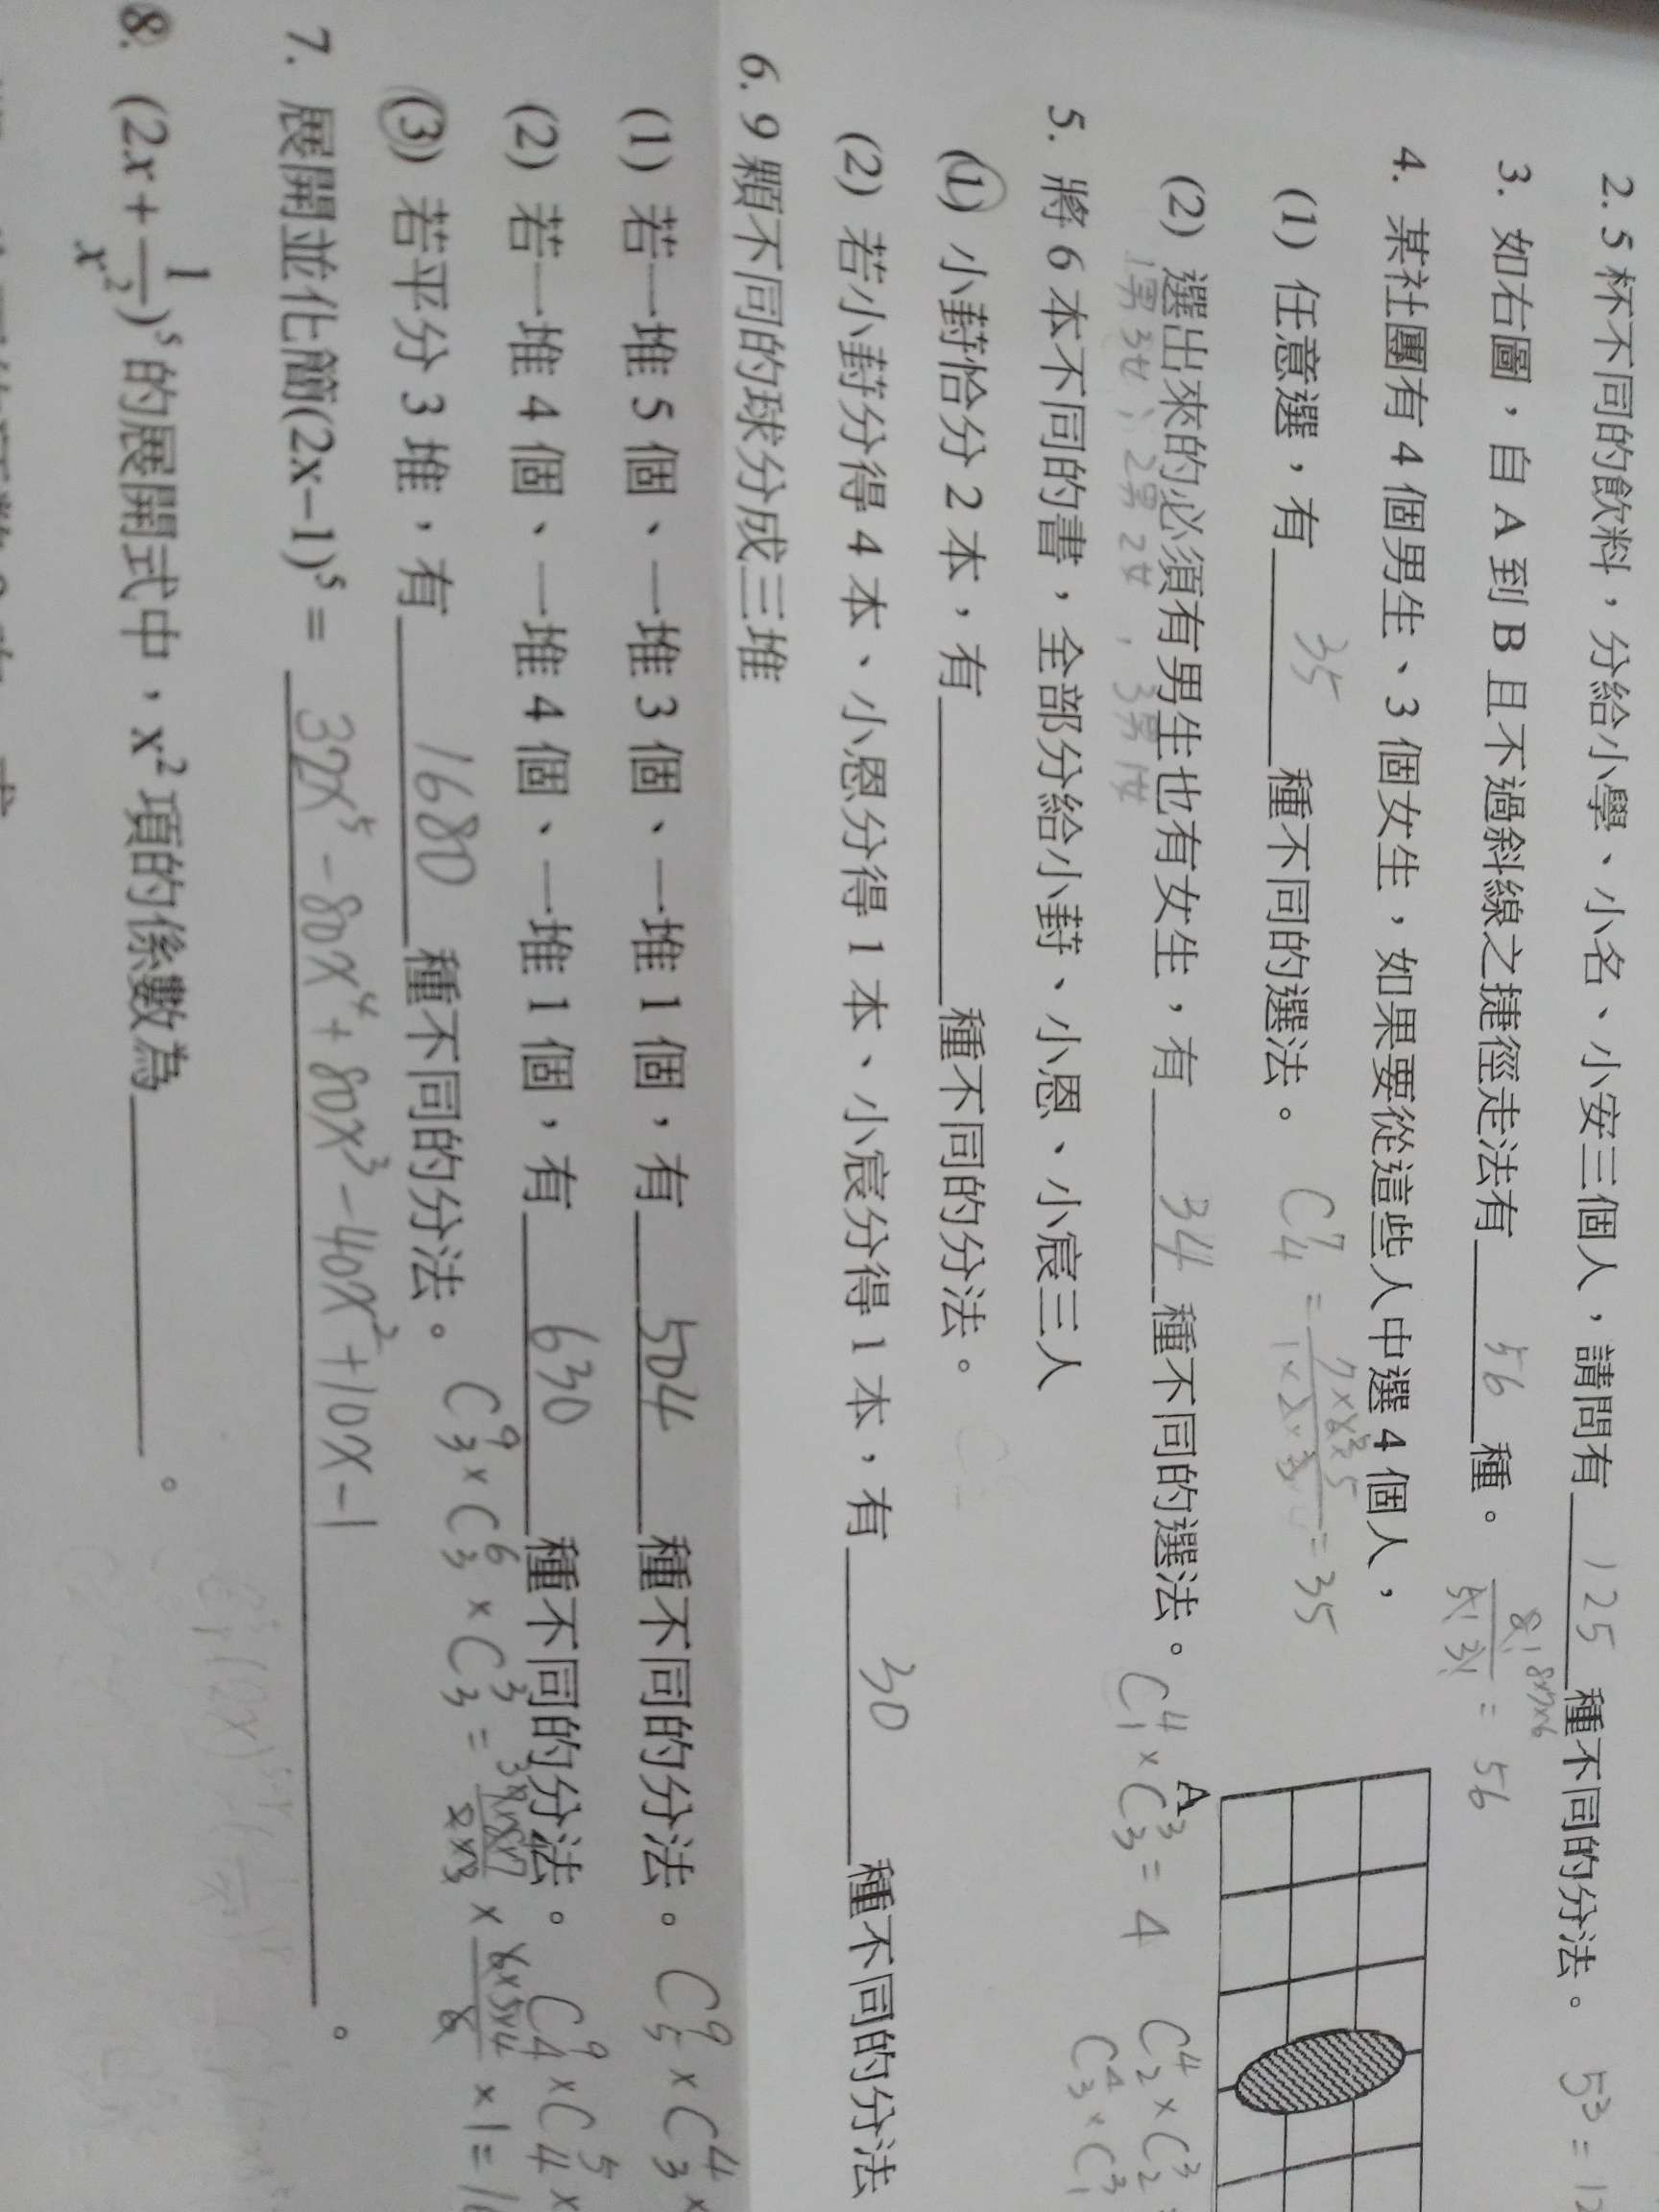 2. 5 杯不同的飲料，分給小學、小名、小安三個人，請問有 125 種不同的分法。 5³ = 12
3. 如右圖，自 A 到 B 且不過斜線之捷徑走法有 56 種。 8! / 5! 3! = 56
8×7×6
4. 某社團有 4 個男生、3 個女生，如果要從這些人中選 4 個人，
(1) 任意選，有 35 種不同的選法。 C⁷₄ = = 35
(2) 選出來的必須有男生也有女生，有 34 種不同的選法。 C⁴₁ × C³₃ = 4 C⁴₂ × C³₂ =
1男3女, 2男2女, 3男1女 C⁴₃ × C³₁
A
5. 將 6 本不同的書，全部分給小葑、小恩、小宸三人
(1) 小葑恰分 2 本，有 種不同的分法。
(2) 若小葑分得 4 本、小恩分得 1 本、小宸分得 1 本，有 30 種不同的分法
6. 9 顆不同的球分成三堆
(1) 若一堆 5 個、一堆 3 個、一堆 1 個，有 504 種不同的分法。 C⁹₅ × C⁴₃ ×
(2) 若一堆 4 個、一堆 4 個、一堆 1 個，有 630 種不同的分法。 C⁹₄ × C⁵₄ ×
(3) 若平分 3 堆，有 1680 種不同的分法。 C⁹₃ × C⁶₃ × C³₃ = × 6×5×4 × 1 =
7. 展開並化簡(2x−1)⁵ = 32x⁵ − 80x⁴ + 80x³ − 40x² + 10x − 1 。
8. (2x + 1/x²)⁵ 的展開式中，x² 項的係數為 。